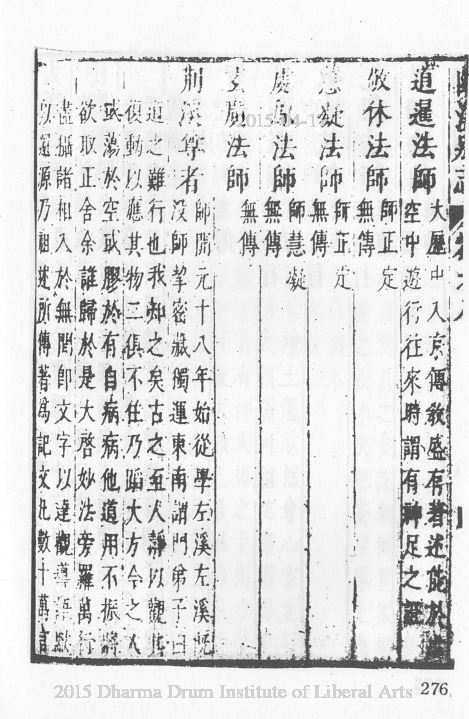 道暹法師 大曆中入京傳教盛有著述能於
空中遊行往來時謂有神足之證
法師 師正定
無傳
慧凝法師 師正定
無傳
法師 師慧凝
無傳
法師 無傳
荊溪尊者 師開元十八年始從學左溪左溪既
沒師挈密藏獨運東南謂門弟子曰
道之難行也我知之矣古之至人靜以觀其
復動以應其物二俱不住乃蹈大方今之人
或蕩於空或膠於有自病病他道用不振將
欲取正舍余誰歸於是大啓妙法旁羅萬行
盡攝諸相入於無間即文字以達觀導語默
以還源乃祖述所傳著為記文凡數十萬言
2015-04-1
2015 Dharma Drum Institute of Liberal Arts
276